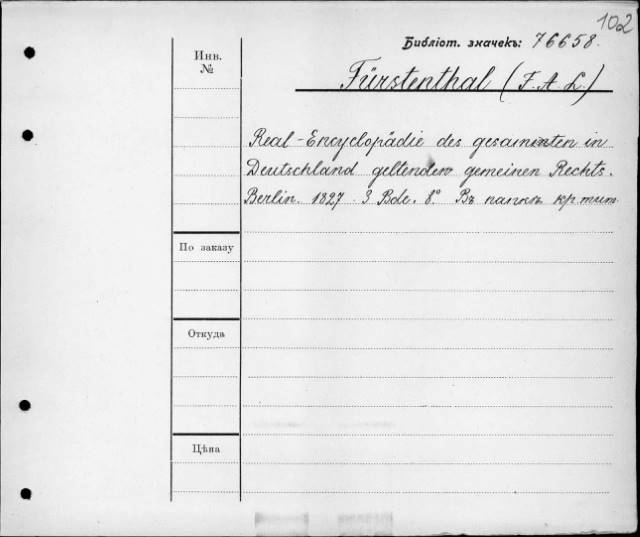 102
Библіот. значекъ: 76658.
Инв. №
Fürstenthal (F. A. L.)
Real-Encyclopädie des gesammten in
Deutschland geltenden gemeinen Rechts.
Berlin. 1827. 3 Bde. 8º. Въ папкѣ кр. тит.
По заказу
Откуда
Цѣна